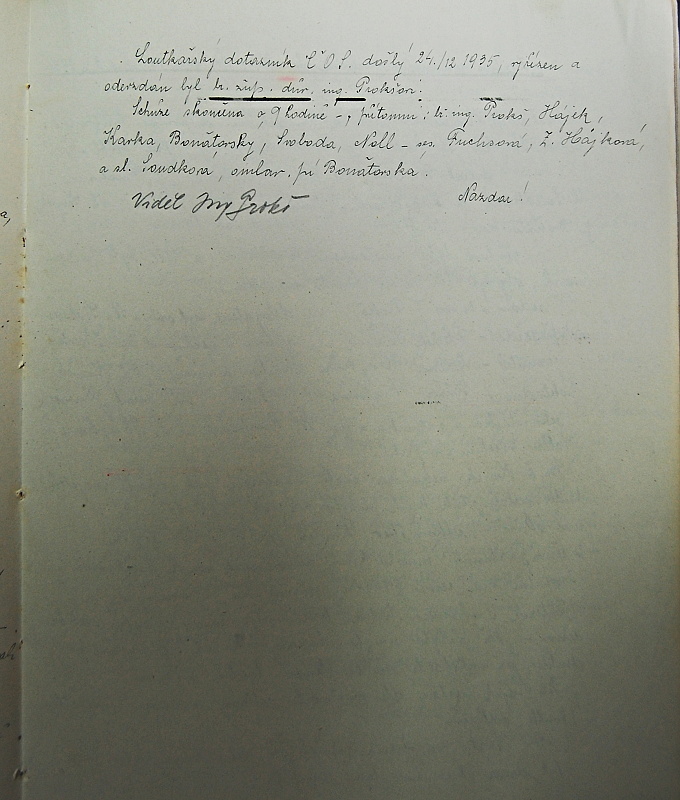 Loutkářský dotazník Č.O.S. došlý 24./12 1935, vyřízen a
odevzdán byl br. žup. důr. ing. Prokšovi.
Schůze skončena o 9 hodině –, přítomni: br. ing. Prokš, Hájek,
Karka, Bonátorský, Svoboda, Noll – ses. Fuchsová, Z. Hájková,
a sl. Soudková, omluv. pí Bonátorska.
Nazdar!
Viděl Ing Prokš